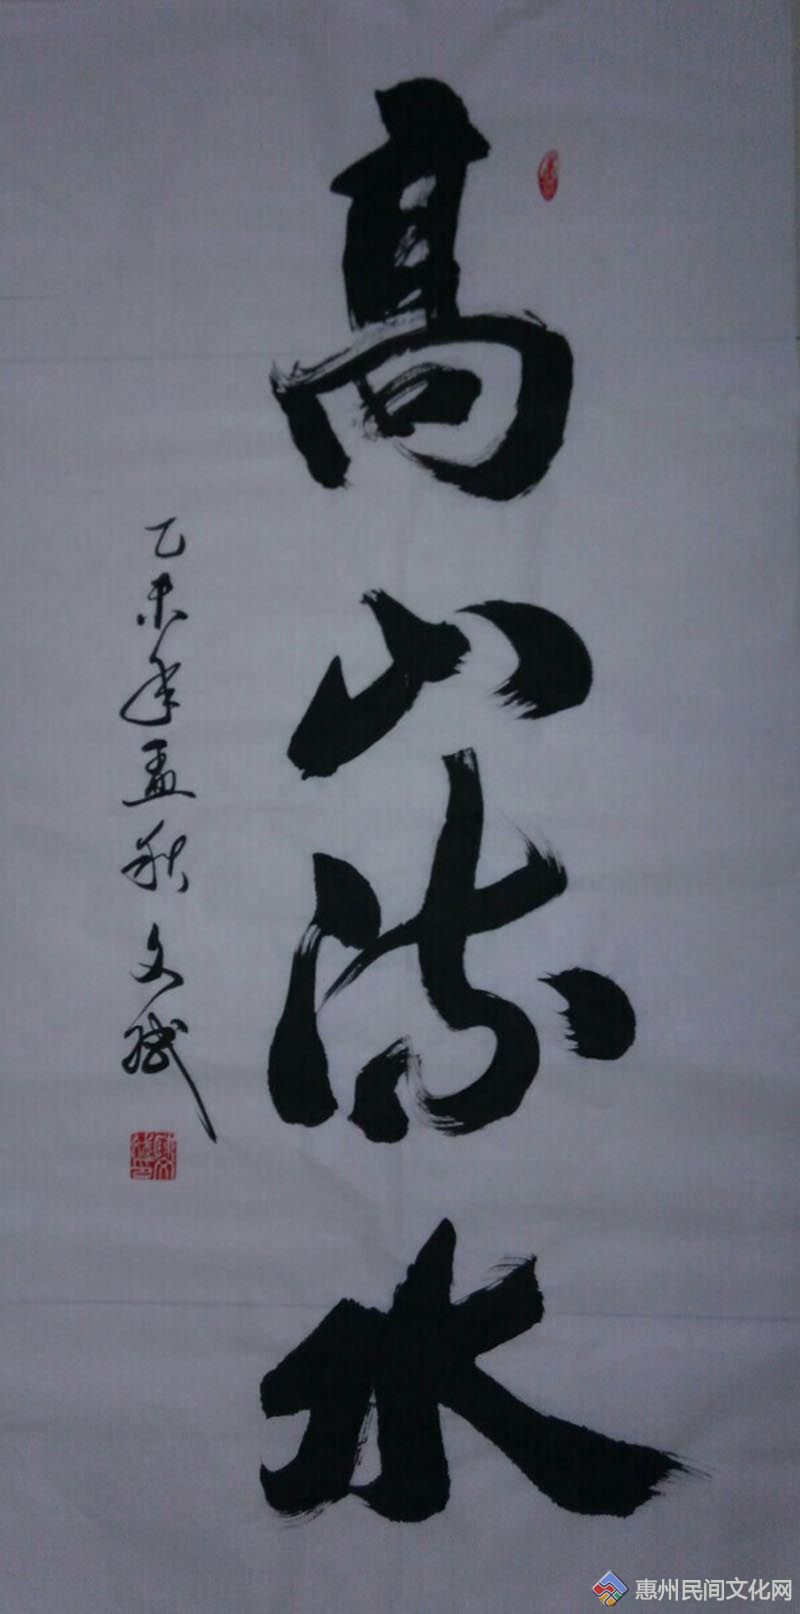 高山流水
乙未年孟秋 文斌
惠州民间文化网